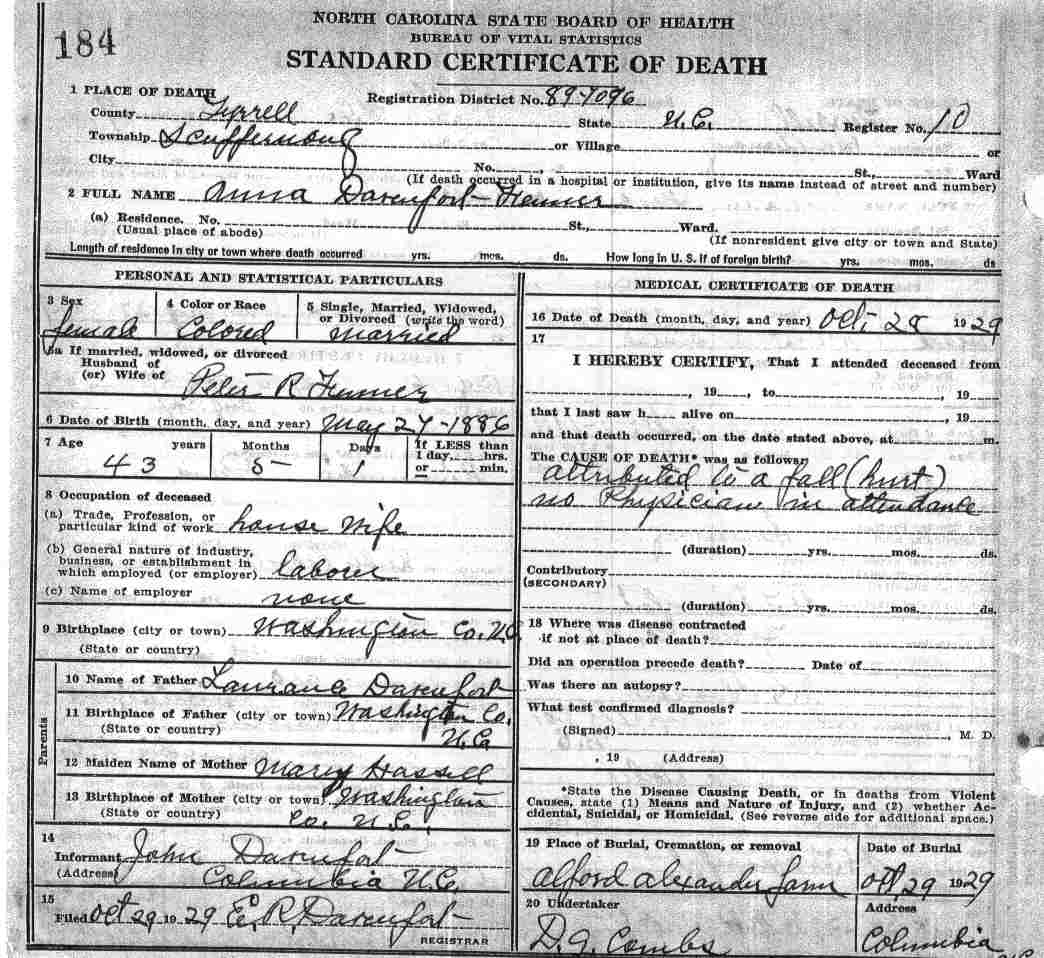 184
NORTH CAROLINA STATE BOARD OF HEALTH
BUREAU OF VITAL STATISTICS
STANDARD CERTIFICATE OF DEATH
1 PLACE OF DEATH
Registration District No. 89-7096
County Tyrrell State N.C. Register No. 10
Township Scuppernong or Village or
City No. , St., Ward
(If death occurred in a hospital or institution, give its name instead of street and number)
2 FULL NAME Anna Davenport Fenner
(a) Residence. No. St., Ward.
(Usual place of abode) (If nonresident give city or town and State)
Length of residence in city or town where death occurred yrs. mos. ds. How long in U. S. if of foreign birth? yrs. mos. ds
PERSONAL AND STATISTICAL PARTICULARS
3 Sex 4 Color or Race 5 Single, Married, Widowed,
or Divorced (write the word)
female Colored married
5a If married, widowed, or divorced
Husband of
(or) Wife of Peter R Fenner
6 Date of Birth (month, day, and year) May 27-1886
7 Age years Months Days If LESS than
1 day, hrs.
or min.
43 5 1
8 Occupation of deceased
(a) Trade, Profession, or
particular kind of work house wife
(b) General nature of industry,
business, or establishment in
which employed (or employer) laborer
(c) Name of employer none
9 Birthplace (city or town) Washington Co. N.C
(State or country)
Parents
10 Name of Father Laurance Davenport
11 Birthplace of Father (city or town) Washington Co.
(State or country) N.C.
12 Maiden Name of Mother Mary Hassell
13 Birthplace of Mother (city or town) Washington
(State or country) Co. N.C.
14
Informant John Davenport
(Address) Columbia N.C.
15
Filed Oct 29, 1929 E. R. Davenport
REGISTRAR
MEDICAL CERTIFICATE OF DEATH
16 Date of Death (month, day, and year) Oct, 28 1929
17
I HEREBY CERTIFY, That I attended deceased from
, 19 , to , 19
that I last saw h alive on , 19
and that death occurred, on the date stated above, at m.
The CAUSE OF DEATH* was as follows:
attributed to a fall (hurt)
no Physician in attendance
(duration) yrs. mos. ds.
Contributory
(SECONDARY)
(duration) yrs. mos. ds.
18 Where was disease contracted
if not at place of death?
Did an operation precede death? Date of
Was there an autopsy?
What test confirmed diagnosis?
(Signed) , M. D.
, 19 (Address)
*State the Disease Causing Death, or in deaths from Violent
Causes, state (1) Means and Nature of Injury, and (2) whether Ac-
cidental, Suicidal, or Homicidal. (See reverse side for additional space.)
19 Place of Burial, Cremation, or removal Date of Burial
Alford Alexander farm Oct 29 1929
20 Undertaker Address
D. G. Combs Columbia
N.C.